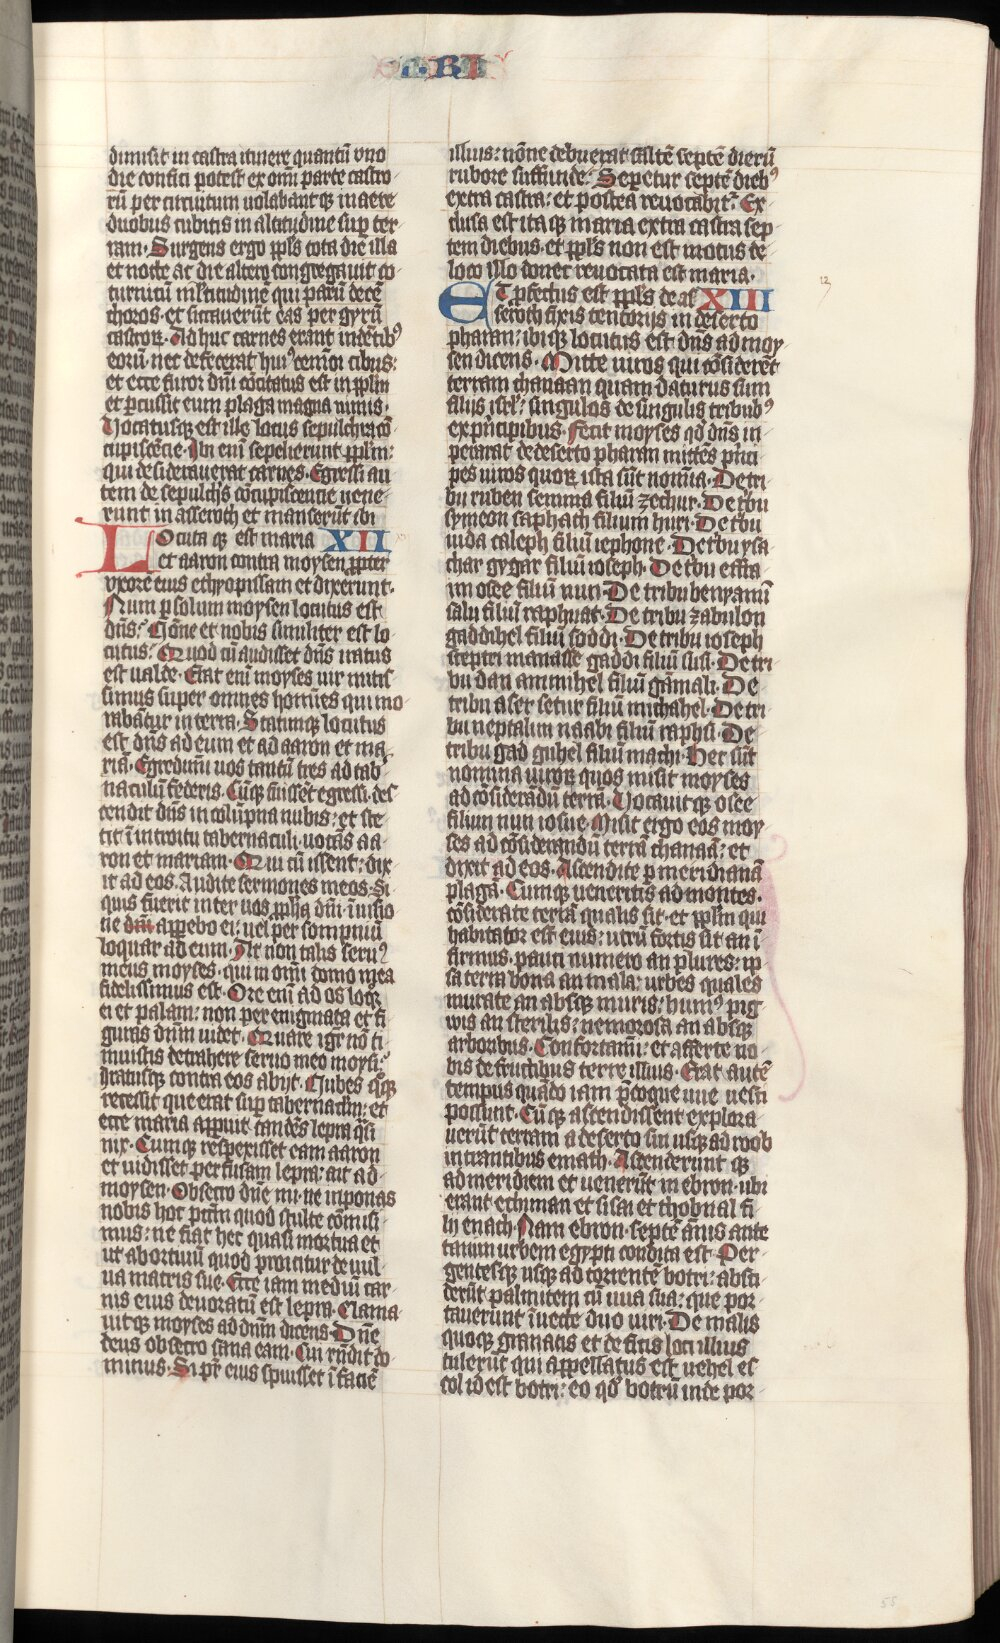 BRI
dimisit in castra itinere quantū vno
die confici potest ex omī parte castro
rū per circuitum uolabantqꝫ in aere
duobus cubitis in altitudine sup ter
ram. Surgens ergo ppl̄s tota die illa
et nocte ac die altero congregauit co
turnicū ml̄titudinē qui parū decē
choros. et siccauerūt eas per gyrū
castroꝝ. Ad huc carnes erant in dētibꝰ
eorū. nec defecerat huiꝰcemōi cibus:
et ecce furor dnī cōcitatus est in ppl̄m
et ꝑcussit eum plaga magna nimis.
Vocatusqꝫ est ille locus sepulchra cō
cupiscēcie. Ibi enī sepelierunt ppl̄m:
qui desiderauerat carnes. Egressi au
tem de sepulch̄s cōcupiscentie uene
runt in asseroth et manserūt ibi
Locuta qꝫ est maria XII
et aaron contra moysen ꝓpter
vxorē eius ethyopissam et dixerunt.
Num ꝑ solum moysen locutus est
dn̄s: Nōne et nobis similiter est lo
cutus: Quod cū audisset dn̄s iratus
est ualde. Erat enī moyses vir mitis
simus super omnes homīes qui mo
rabātur in terra. Statimqꝫ locutus
est dn̄s ad eum et ad aaron et ma
riā. Egredimī uos tantū tres ad tab
naculū federis. Cūqꝫ fuissēt egressi. des
cendit dn̄s in colūpna nubis: et ste
tit ī introitu tabernaculi. uocās aa
ron et mariam. Qui cū issent: dix
it ad eos. Audite sermones meos. Si
quis fuerit inter uos ꝓpha dnī. ī uisio
ne dnī apꝑebo ei: uel per sompniū
loquar ad eum. At non talis seruꝰ
meus moyses. qui in omī domo mea
fidelissimus est. Ore enī ad os loqr
ei et palam: non per enigmata et fi
guras dnm̄ uidet. Quare igr̄ nō ti
muistis detrahere seruo meo moysi:
Iratusqꝫ contra eos abijt. Nubes qꝫ
recessit que erat sup tabernaclm̄: et
ecce maria apꝑuit candēs lepra q̄si
nix. Cumqꝫ respexisset eam aaron
et uidisset perfusam lepra: ait ad
moysen. Obsecro dn̄e mi. ne inponas
nobis hoc pctm̄ quod stulte cōmisi
mus: ne fiat hec quasi mortua et
ut abortiuū quod proicitur de uul
ua matris sue. Ecce iam mediū car
nis eius deuoratū est lepra. Clama
uitqꝫ moyses ad dnm̄ dicens. Dn̄e
deus obsecro sana eam. Cui rn̄dit do
minus. Si pr̄ eius spuisset ī faciē
illius: nōne debuerat saltē septē dierū
rubore suffundi: Seperetur septē diebꝰ
extra castra: et postea reuocabit̄. Ex
clusa est itaqꝫ maria extra castra sep
tem diebus. et ppl̄s non est motus de
loco illo donec reuocata est maria.
Et ꝓfectus est ppl̄s de as XIII
seroth fixis tentorijs in deserto
pharan: ibiqꝫ locutus est dn̄s ad moy
sen dicens. Mitte uiros qui cōsiderēt
terram chanaan quam daturus sum
filijs isrl̄: singulos de singulis tribubꝰ
ex pīcipibus. Fecit moyses qd̄ dn̄s in
perarat. de deserto pharan mittēs pīci
pes uiros quoꝝ ista sūt nomīa. De tri
bu ruben semma filiū zechur. De tbu
symeon saphath filium huri. De tbu
iuda caleph filiū iephone. De tbu ysa
char gygar filiū ioseph. De tbu effra
im osee filiū nun. De tribu benyamī
salu filiū raphuat. De tribu zabulon
gaddihel filiū soddi. De tribu ioseph
sceptri manasse gaddi filiū susi. De tri
bu dan ammihel filiū gāmali. De
tribu aser setur filiū michahel. De tri
bu neptalim naabi filiū raphsi. De
tribu gad guhel filiū machi. Hec sūt
nomina uiroꝝ quos misit moyses
ad cōsideradū terrā. Vocauitqꝫ osee
filium nun iosue. Misit ergo eos moy
ses ad cōsiderandū terrā chanaā: et
dixit ad eos. Ascendite ꝑ meridianā
plagā. Cumqꝫ ueneritis ad montes.
cōsiderate terrā qualis sit. et ppl̄m qui
habitator est eius: utrū fortis sit an ī
firmus. pauci numero an plures: ip
sa terra bona an mala: urbes quales
murate an absqꝫ muris: humꝰ pīg
wis an sterilis: nemorosa an absqꝫ
arboribus. Confortamī: et afferte uo
bis de fructibus terre illius. Erat autē
tempus quādo iam p̄coque uue uesci
possunt. Cūqꝫ ascendissent explora
uerūt terram a deserto sin usqꝫ ad roob
intrantibus emath. Ascenderunt qꝫ
ad meridiem et uenerūt in ebron. ubi
erant echiman et sisai et thobnal fi
lij enach. Nam ebron septē ānis ante
tanim urbem egypti condita est. Per
gentesqꝫ usqꝫ ad torrentē botri: absci
derūt palmitem cū uua sua: que por
tauerunt ī uecte duo uiri. De malis
quoqꝫ granatis et de ficis loci illius
tulerūt qui appellatus est nehel es
col id est botri: eo qd̄ botrū inde por
12
55